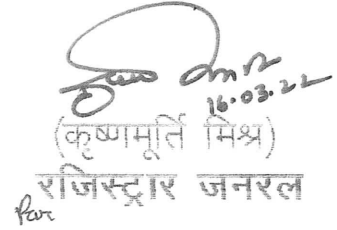 16.03.22
(कृष्णमूर्ति मिश्र)
रजिस्ट्रार जनरल